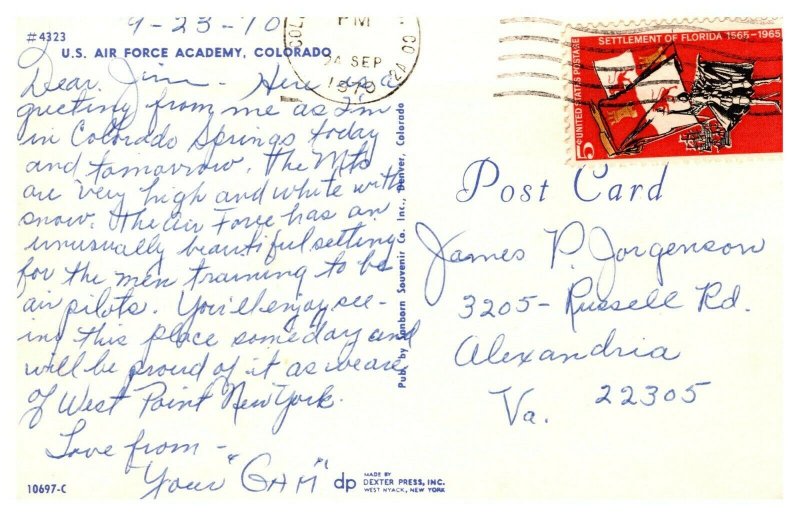 9-23-70
#4323
U.S. AIR FORCE ACADEMY, COLORADO
Dear Jim - Here is a
greeting from me as I'm
in Colorado Springs today
and tomorrow. The Mts
are very high and white with
snow. The Air Force has an
unusually beautiful setting
for the men training to be
air pilots. You'll enjoy see-
ing this place someday and
will be proud of it as we are
of West Point New York.
Love from -
Your "GAM"
10697-C
dp
MADE BY
DEXTER PRESS, INC.
WEST NYACK, NEW YORK
Pub. by Sanborn Souvenir Co. Inc., Denver, Colorado
PM
24 SEP
1970
SETTLEMENT OF FLORIDA 1565-1965
5¢ UNITED STATES POSTAGE
Post Card
James P. Jorgenson
3205- Russell Rd.
Alexandria
Va. 22305